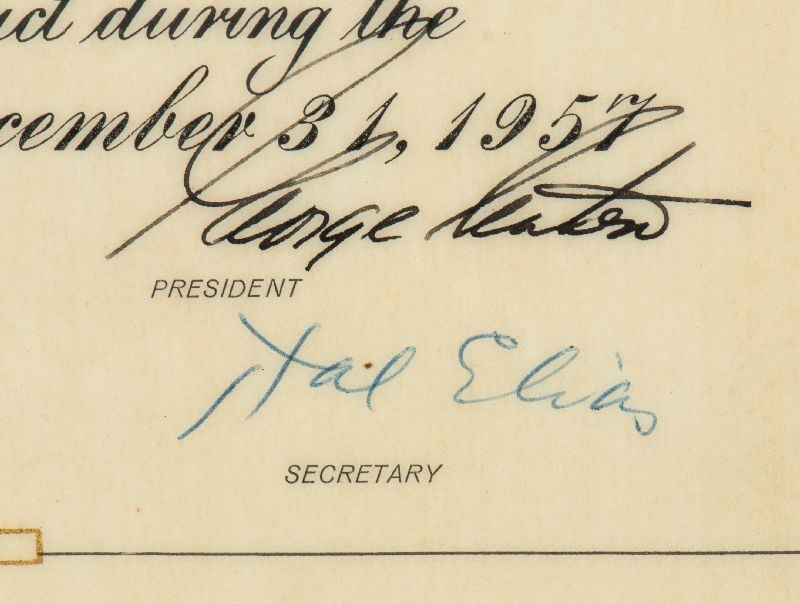 uct during the
cember 31, 1957
George Seaton
PRESIDENT
Hal Elias
SECRETARY